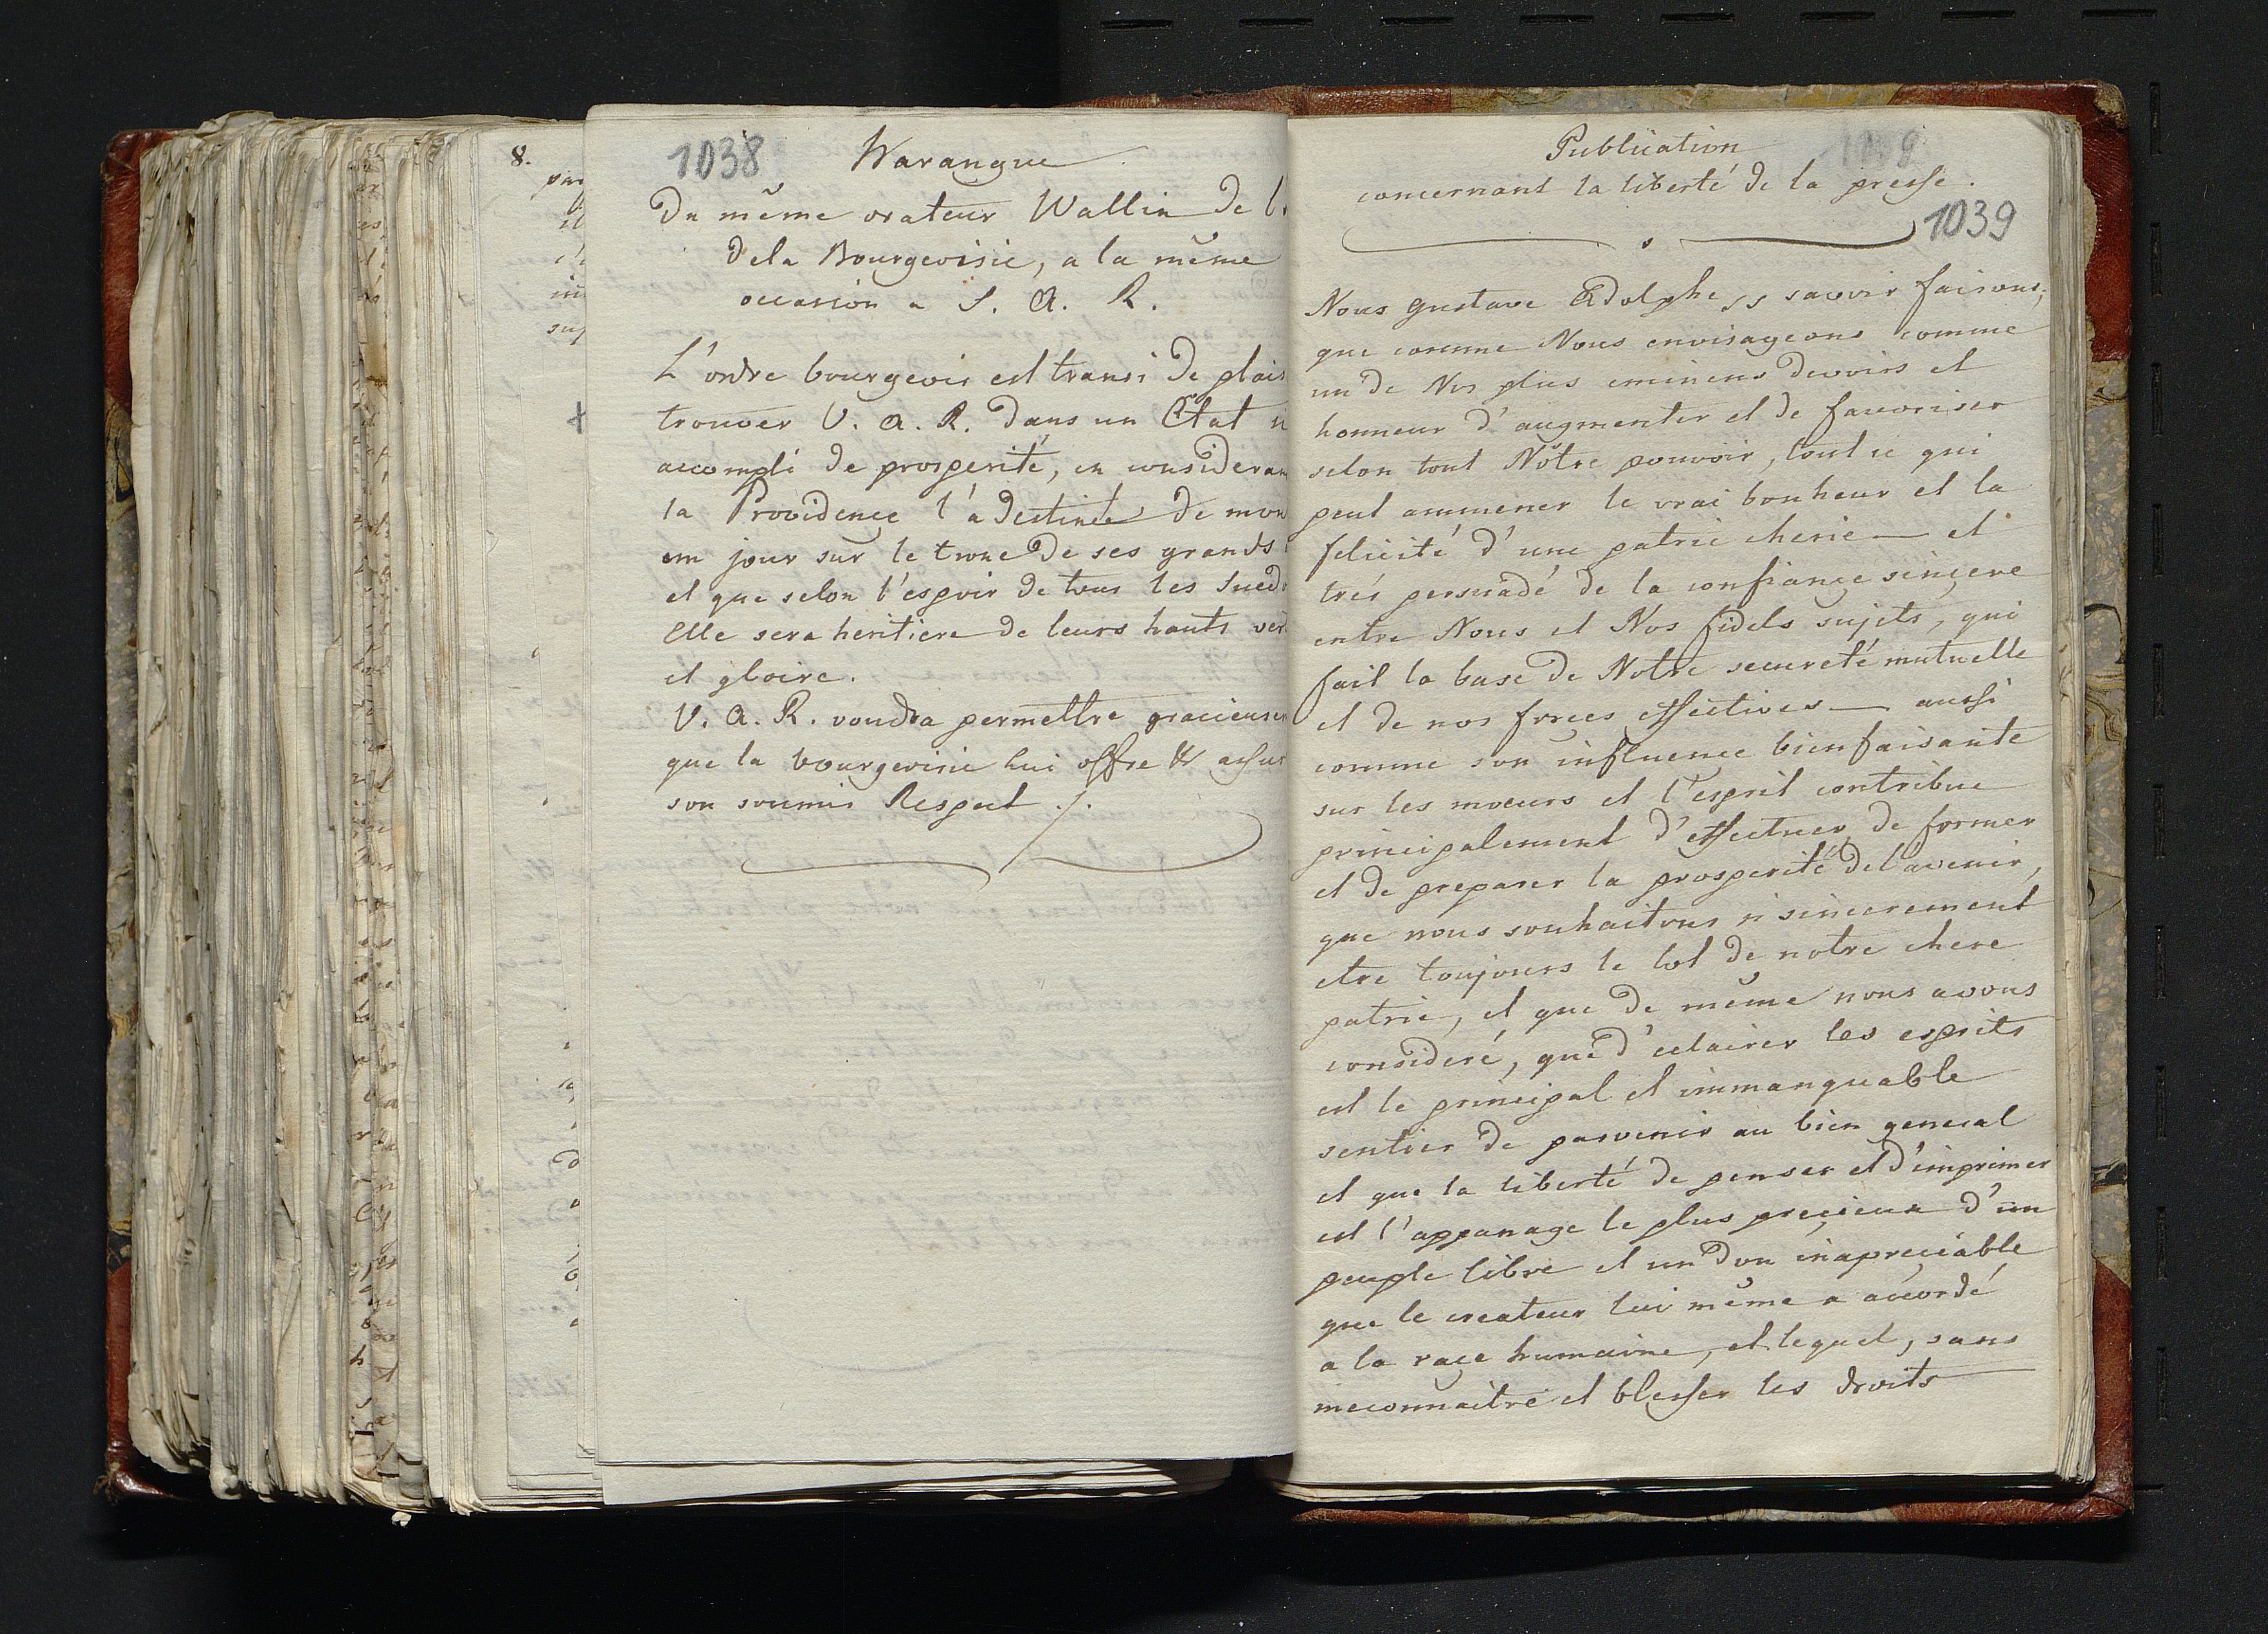 1038
Warangue
Du même orateur Wallin de
dela Bourgeoisie, a la même
occasion a S. A. R.
L'ordre bourgeois est transi de plais
trouver V. A. R. dans un Etat
accompli de prosperité, en consideran
la Providence l'a destinée de mon
un jour sur le trone de ses grands
et que selon l'espoir de tous les Sued
Elle sera heritiere de leurs hauts ver
et gloire.
V. A. R. voudra permettre gracieuse
que la bourgeoisie lui offre & assur
son soumis Respect ./.
Publication
concernant la liberté de la presse.
1039
Nous Gustave Adolphe ss savoir faisons,
que comme Nous envisageons comme
un de Nos plus eminens devoirs et
honneur d'augmenter et de favoriser
selon tout Nôtre pouvoir, tout ce qui
peut ammener le vrai bonheur et la
felicité d'une patrie cherie — et
trés persuadé de la confiance sincere
entre Nous et Nos fidels sujets, qui
fait la base de Notre secureté mutuelle
et de nos forces effectives — aussi
comme son influence bienfaisante
sur les moeurs et l'esprit contribue
principalement d'effectuer de former
et de preparer la prosperité del'avenir,
que nous souhaitons si sincerement
etre toujours le lot de notre chere
patrie, et que de même nous avons
consideré, que d'eclairer les esprits
est le principal et immanquable
sentier de parvenir au bien general
et que la liberté de penser et d'imprimer
est l'appanage le plus precieux d'un
peuple libre et un don inapreciable
que le createur lui même a accordé
a la race humaine, et lequel, sans
meconnaitre et blesser les droits